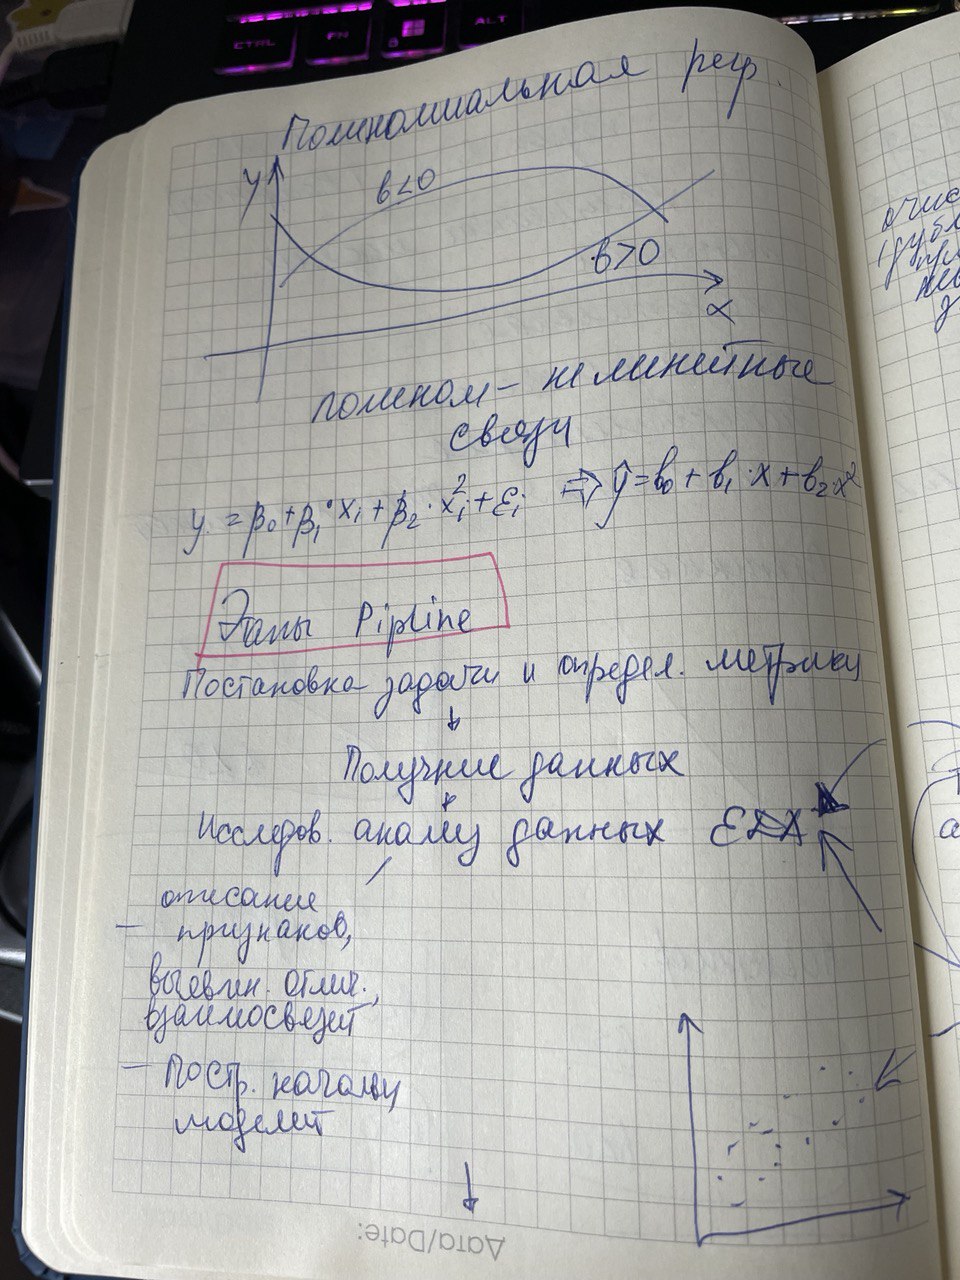 CTRL FN ALT
Полиномиальная регр.
y
b<0
b>0
x
полином – нелинейные
связи
y = β₀+β₁·xᵢ+β₂·xᵢ²+εᵢ ⇒ ŷ=b₀+b₁·x+b₂·x²
Этапы Pipline
Постановка задачи и определ. метрики
↓
Получние данных
↓
Исследов. анализ данных EDA
описание
– признаков,
выявлен. отлич.,
взаимосвязей
– Постр. начальн
моделей
↓
Дата/Date:
очис
дубл